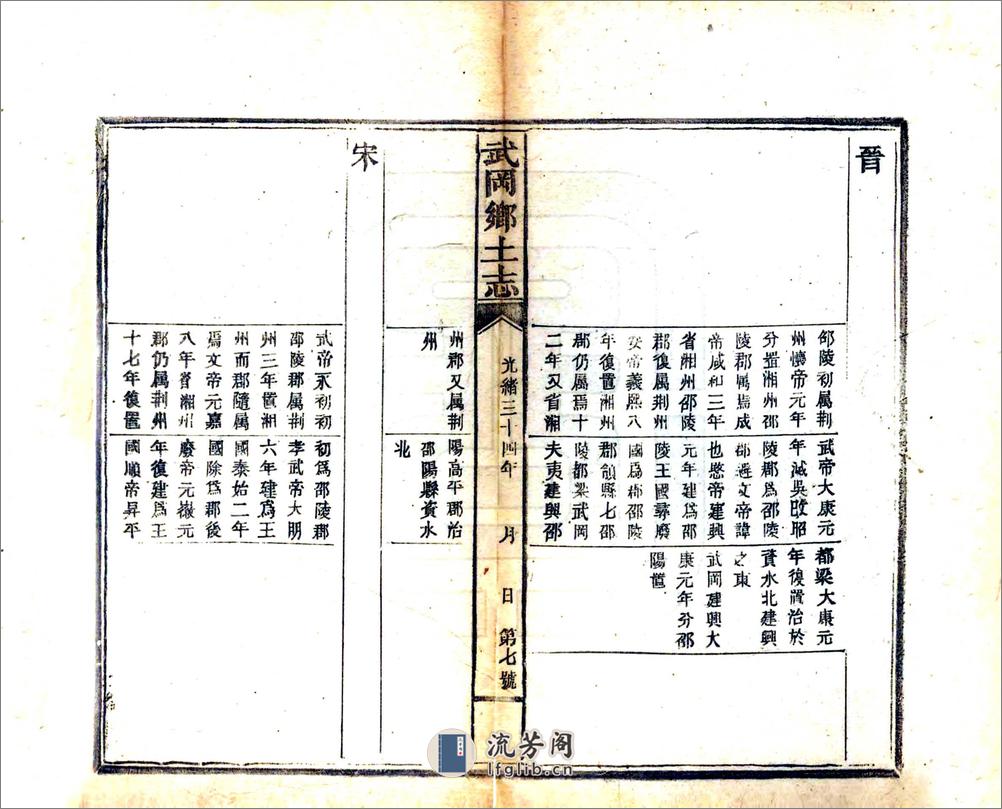 晉
邵陵初属荆
州懷帝元年
分置湘州邵
陵郡属焉成
帝咸和三年
省湘州邵陵
郡復属荆州
安帝義熙八
年復置湘州
郡仍属焉十
二年又省湘
武帝大康元
年滅吳改昭
陵郡爲邵陵
郡避文帝諱
也愍帝建興
元年建爲邵
陵王國尋廢
國爲郡邵陵
郡領縣七邵
陵都梁武岡
夫夷建興邵
都梁大康元
年復置治於
資水北建興
之東
武岡建興大
康元年分邵
陽置
武岡鄉土志
光緒三十四年 月 日 第七號
州郡又属荆
州
陽高平郡治
邵陽縣資水
北
宋
武帝永初初
邵陵郡属荆
州三年置湘
州而郡隨属
焉文帝元嘉
八年省湘州
郡仍属荆州
十七年復置
初爲邵陵郡
孝武帝大明
六年建爲王
國泰始二年
國除爲郡後
廢帝元徽元
年復建爲王
國順帝昇平
流芳阁
lfglib.cn